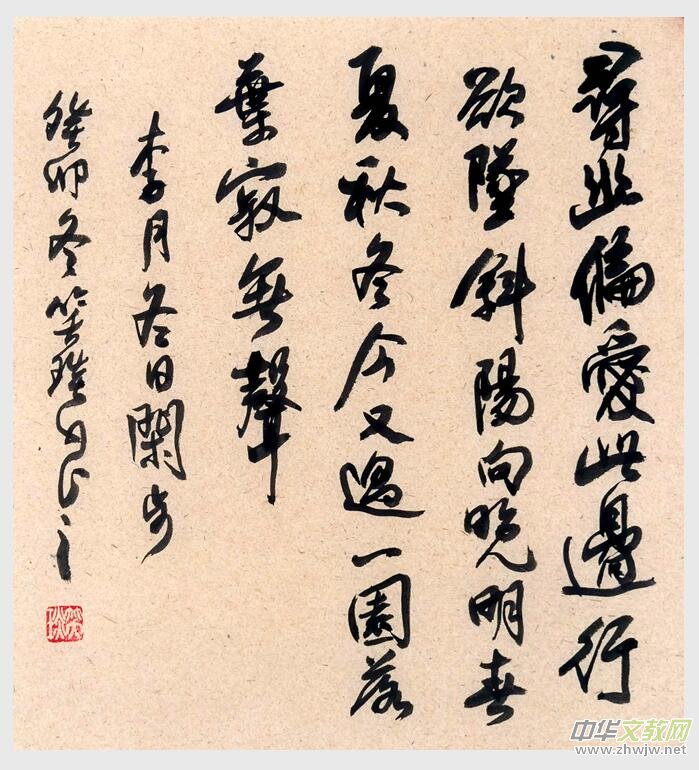 尋幽偏愛此邊行
欲墜斜陽向晚明春
夏秋冬今又過一園落
葉寂無聲
李月冬日閑步
癸卯冬笑琰
中华文教网
www.zhwjw.net